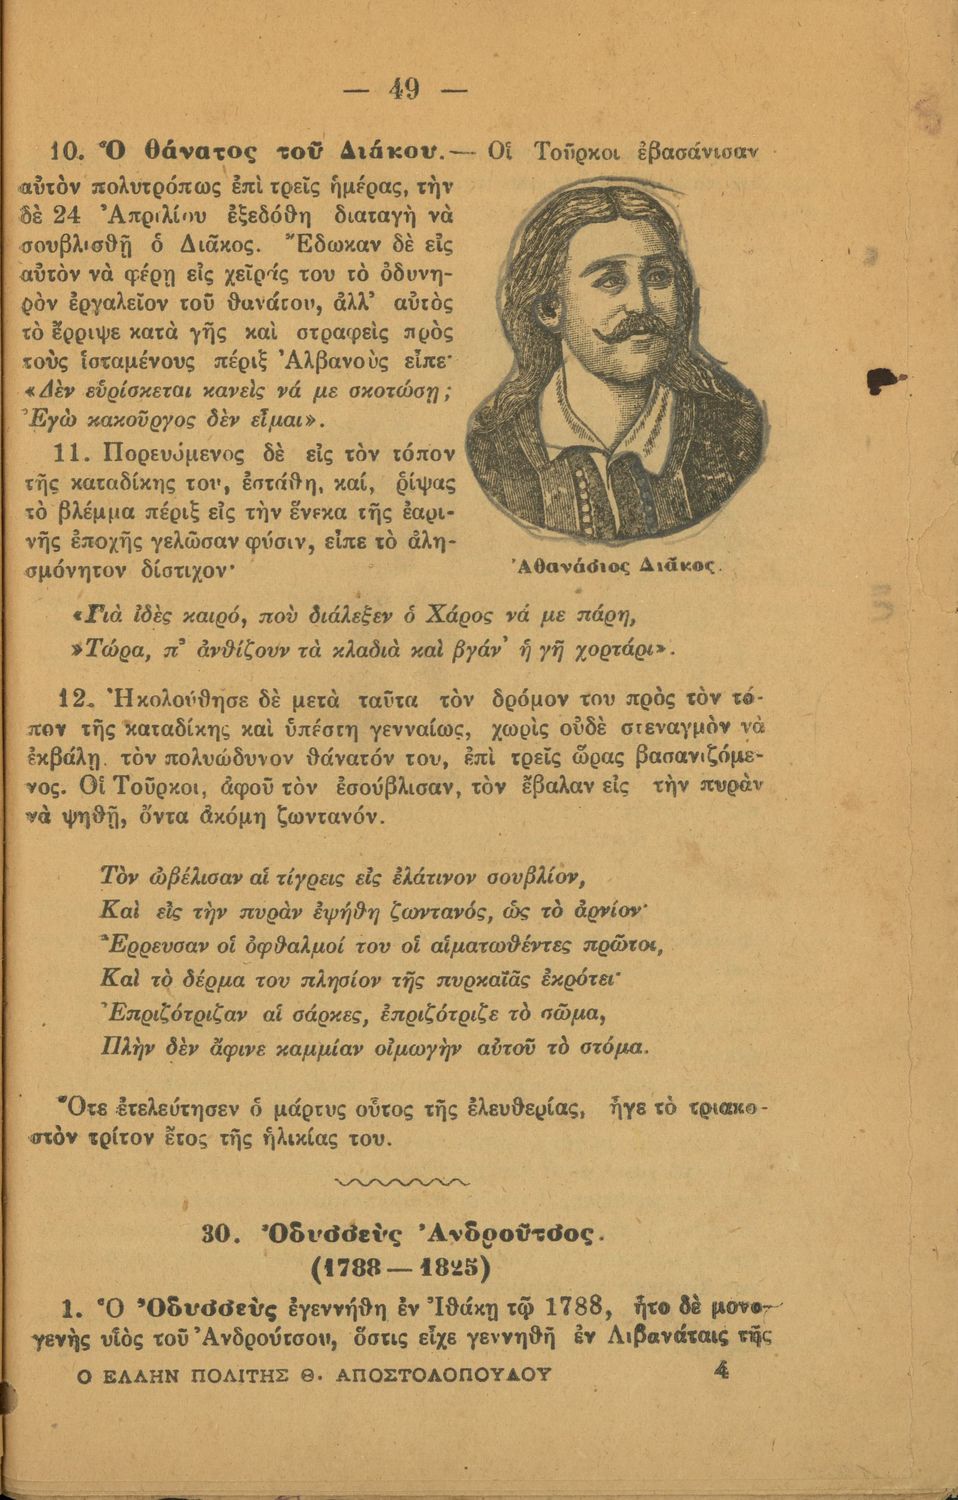 — 49 —
10. Ὁ θάνατος τοῦ Διάκου.— Οἱ Τοῦρκοι ἐβασάνισαν
αὐτὸν πολυτρόπως ἐπὶ τρεῖς ἡμέρας, τὴν
δὲ 24 Ἀπριλίου ἐξεδόθη διαταγὴ νὰ
σουβλισθῇ ὁ Διᾶκος. Ἔδωκαν δὲ εἰς
αὐτὸν νὰ φέρῃ εἰς χεῖράς του τὸ ὀδυνη-
ρὸν ἐργαλεῖον τοῦ θανάτου, ἀλλ' αὐτὸς
τὸ ἔρριψε κατὰ γῆς καὶ στραφεὶς πρὸς
τοὺς ἱσταμένους πέριξ Ἀλβανοὺς εἶπε·
«Δὲν εὑρίσκεται κανεὶς νά με σκοτώσῃ;
Ἐγὼ κακοῦργος δὲν εἶμαι».
11. Πορευόμενος δὲ εἰς τὸν τόπον
τῆς καταδίκης του, ἐστάθη, καί, ῥίψας
τὸ βλέμμα πέριξ εἰς τὴν ἕνεκα τῆς ἐαρι-
νῆς ἐποχῆς γελῶσαν φύσιν, εἶπε τὸ ἀλη-
σμόνητον δίστιχον·
Ἀθανάσιος Διᾶκος.
«Γιὰ ἰδὲς καιρό, ποὺ διάλεξεν ὁ Χάρος νά με πάρῃ,
»Τώρα, π' ἀνθίζουν τὰ κλαδιὰ καὶ βγάν' ἡ γῆ χορτάρι».
12. Ἠκολούθησε δὲ μετὰ ταῦτα τὸν δρόμον του πρὸς τὸν τό-
πον τῆς καταδίκης καὶ ὑπέστη γενναίως, χωρὶς οὐδὲ στεναγμὸν νὰ
ἐκβάλῃ. τὸν πολυώδυνον θάνατόν του, ἐπὶ τρεῖς ὥρας βασανιζόμε-
νος. Οἱ Τοῦρκοι, ἀφοῦ τὸν ἐσούβλισαν, τὸν ἔβαλαν εἰς τὴν πυρὰν
νὰ ψηθῇ, ὄντα ἀκόμη ζωντανόν.
Τὸν ὠβέλισαν αἱ τίγρεις εἰς ἐλάτινον σουβλίον,
Καὶ εἰς τὴν πυρὰν ἐψήθη ζωντανός, ὡς τὸ ἀρνίον·
Ἔρρευσαν οἱ ὀφθαλμοί του οἱ αἱματωθέντες πρῶτοι,
Καὶ τὸ δέρμα του πλησίον τῆς πυρκαϊᾶς ἐκρότει·
Ἐπριζότριζαν αἱ σάρκες, ἐπριζότριζε τὸ σῶμα,
Πλὴν δὲν ἄφινε καμμίαν οἰμωγὴν αὐτοῦ τὸ στόμα.
Ὅτε ἐτελεύτησεν ὁ μάρτυς οὗτος τῆς ἐλευθερίας, ἦγε τὸ τριακο-
στὸν τρίτον ἔτος τῆς ἡλικίας του.
30. Ὀδυσσεὺς Ἀνδροῦτσος.
(1788 — 1825)
1. Ὁ Ὀδυσσεὺς ἐγεννήθη ἐν Ἰθάκῃ τῷ 1788, ἦτο δὲ μονο-
γενὴς υἱὸς τοῦ Ἀνδρούτσου, ὅστις εἶχε γεννηθῆ ἐν Λιβανάταις τῆς
Ο ΕΛΛΗΝ ΠΟΛΙΤΗΣ Θ. ΑΠΟΣΤΟΛΟΠΟΥΛΟΥ 4